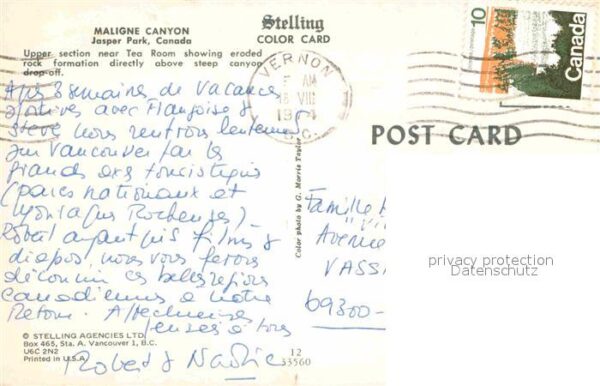 MALIGNE CANYON
Jasper Park, Canada
Upper section near Tea Room showing eroded
rock formation directly above steep canyon
drop-off.
Stelling
COLOR CARD
VERNON
AM
VIII
B.C.
10
Canada
POST CARD
Après 3 semaines de Vacances
avec Françoise &
Steve nous rentrons lentement
sur Vancouver par les
grands axes touristiques
(parcs nationaux et
Rocheuses).
Robert ayant pris films &
diapos nous vous ferons
découvrir ces belles régions
Canadiennes à notre
Retour. Affectueuses
pensées à tous
Robert & Nadine
Color photo by G. Morris Taylor
Famille
Avenue
VASS
69300-
privacy protection
Datenschutz
© STELLING AGENCIES LTD.
Box 465, Sta. A. Vancouver 1, B.C.
U6C 2N2
Printed in U.S.A.
12
33560